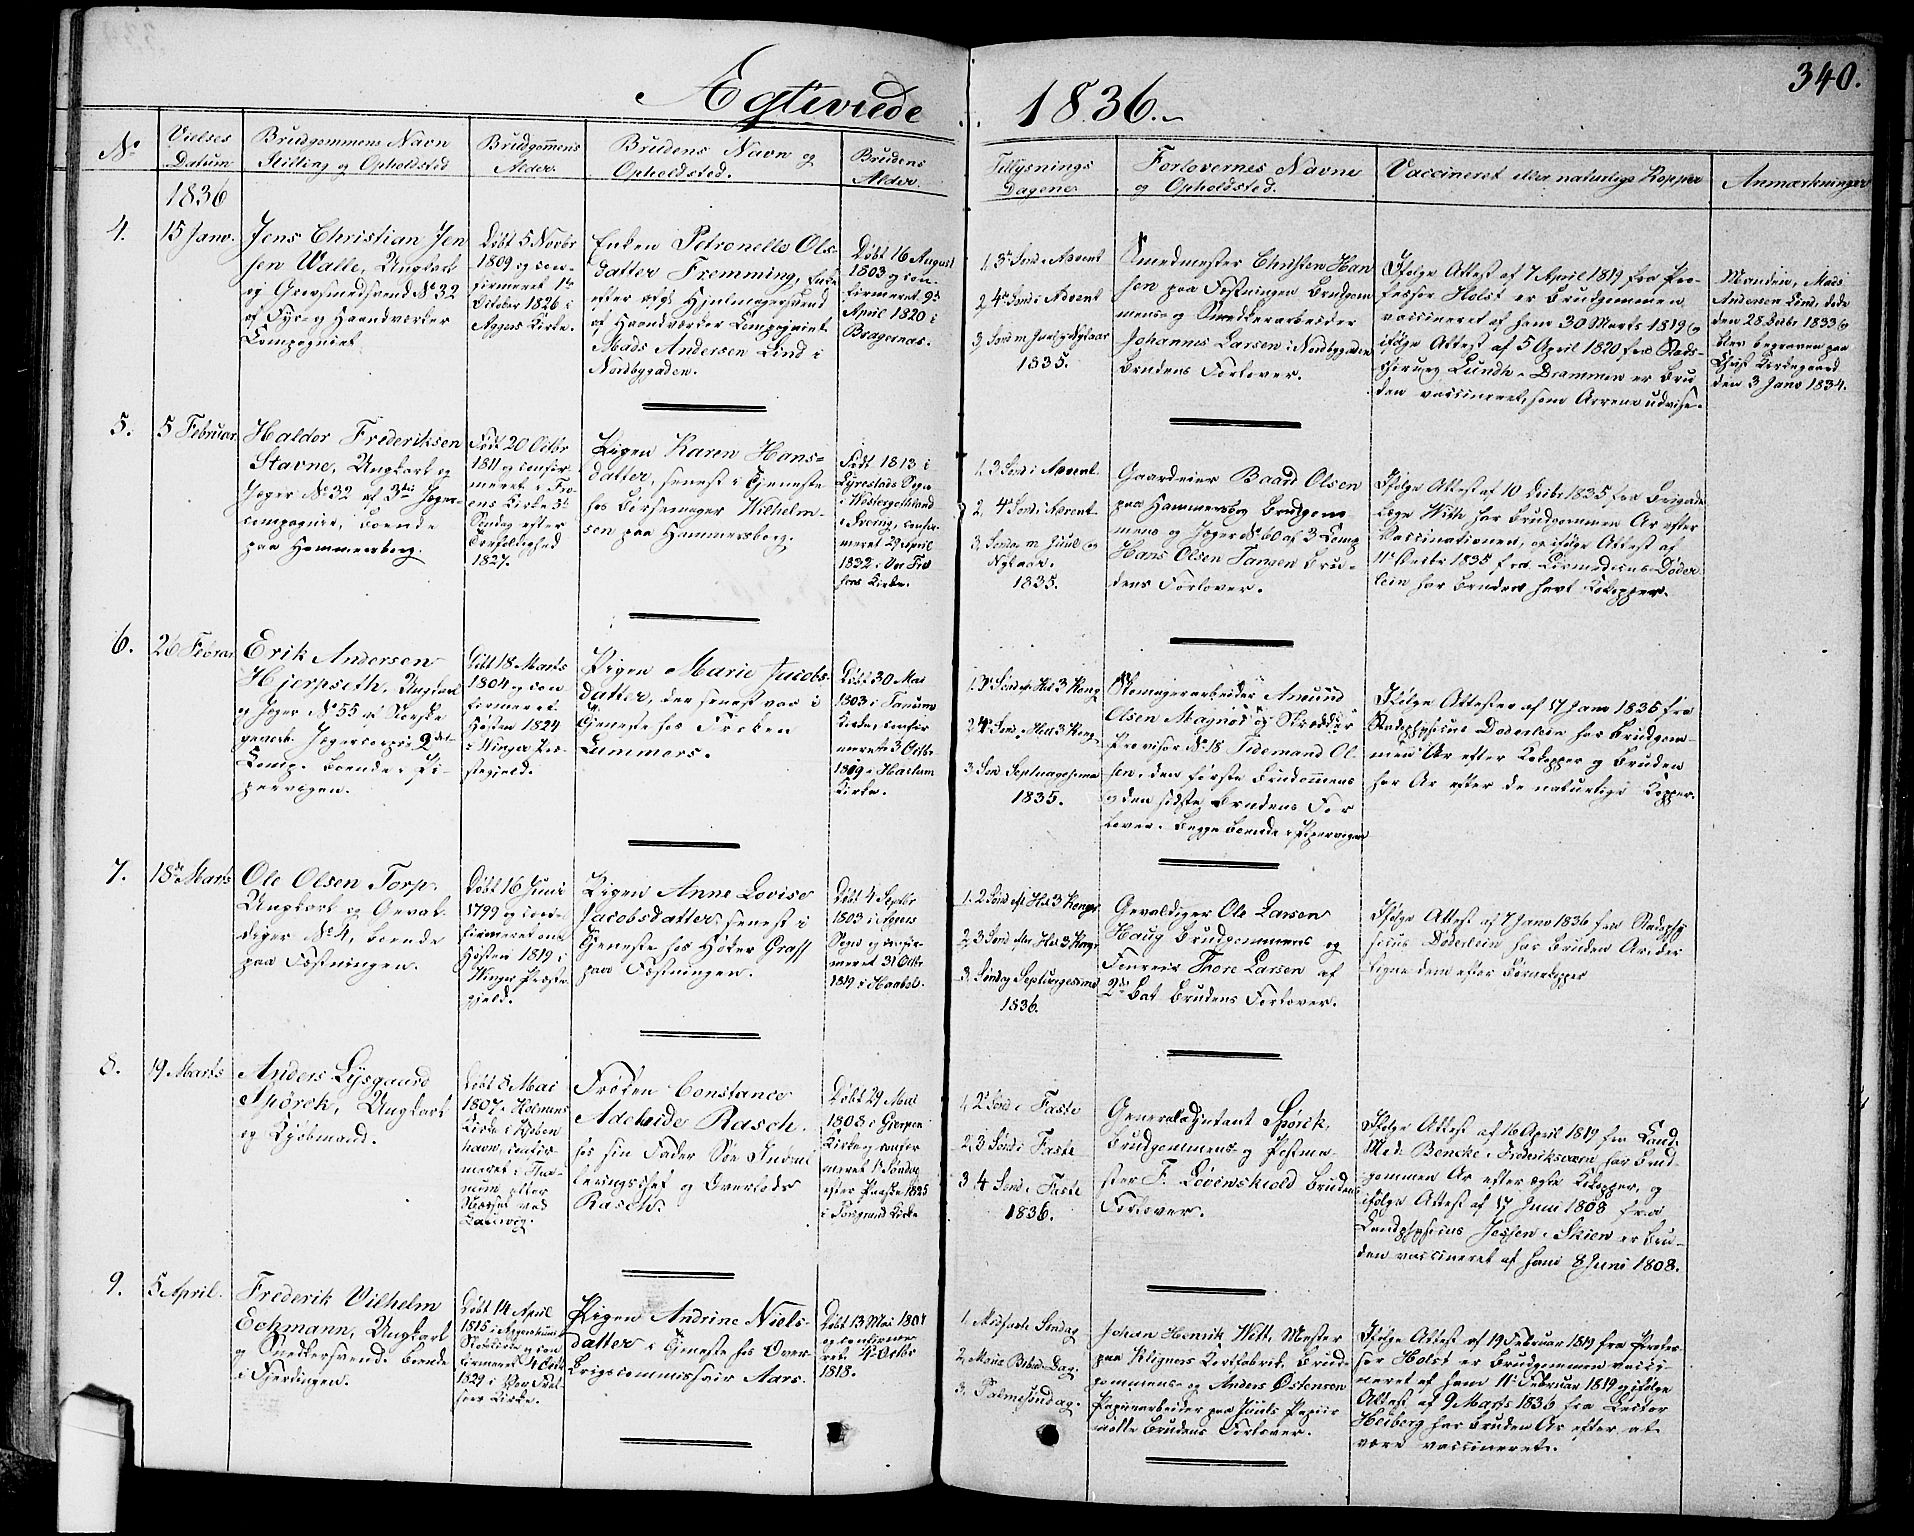 340.
Ægteviede 1836.
No
Vielses Datum
Brudgommens Navn Stilling og Opholdsted
Brudgommens Alder.
Brudens Navn og Opholdsted.
Brudens Alder.
Tillysnings Dagene
Forlovernes Navne og Opholdsted.
Vaccineret eller naturlige Kopper
Anmærkninger
1836
4.
15 Janv.
Jens Christian Jen
sen Walle, Ungkarl
og Grovsmedsvend No 32
af Fys- og Haandværker
Compagniet
Døbt 5 Novbr
1809 og con-
firmeret 1ste
October 1826 i
Aggers Kirke.
Enken Petronelle Ols-
datter Fremming, Enke
efter afg: Hjulmagersvend
af Haandværker Compagniet
Mads Andersen Lind i
Nordbygaden.
Døbt 16 August
1803 og con-
firmeret 9de
April 1820 i
Bragernæs.
1, 3de Sønd i Advent
2, 4de Sønd i Advent
3, Sønd m Juul og Nytaar
1835.
Smedmester Christen Han
sen paa Fæstningen Brudgom
mens og Snedkerarbeider
Johannes Larsen i Nordbygaden
Brudens Forlover.
Ifølge Attest af 7 April 1819 fra Pro-
fessor Holst er Brudgommen
vaccineret af ham 30 Marts 1819 og
ifølge Attest af 5 April 1820 fra Stads-
chirurg Lundh i Drammen er Bru
den vaccineret, som Arrene udvise.
Manden, Mads
Andersen Lind, døde
den 28 Decbr 1833 og
blev begraven paa
Christ Kirkegaard
den 3 Janv 1834.
5.
5 Februar.
Haldor Frederiksen
Stavne, Ungkarl og
Jæger No 32 af 3die Jæger
compagnie, boende
paa Hammersborg.
Født 20 Octbr
1811 og confir-
meret i
Kirke 5te
Søndag efter
Trefoldighed
1827.
Pigen Karen Hans-
datter, senest i Tjeneste
hos Børsemager Wilhelm-
sen paa Hammersborg.
Født 1813 i
Sogn
i Westergothland
i Sverig, confir-
meret 29 April
1832 i Vor Frel
sers Kirke.
1, 3 Sønd i Advent
2, 4 Sønd i Advent
3, Søndag m Juul og
Nytaar.
1835.
Gaardeier Baard Olsen
paa Hammersborg Brudgom
mens og Jæger No 60 af 3 Comp
Hans Olsen Tangen Bru-
dens Forlover.
Ifølge Attest af 10 Decbr 1835 fra Brigade
læge With har Brudgommen Ar efter
Vaccinationen, og ifølge Attest af
11te Decbr 1835 fra Døder
lein har Bruden havt Kokopper.
6.
26 Febrar
Erik Andersen
Hjerpseth, Ungkarl
og Jæger No 55 ved Norske
gevorb. Jægercorps's 2det
Comp. boende i Pi-
pervigen.
Døbt 18 Marts
1804 og con
firmeret
Høsten 1824
i Winger Præ-
stegjeld.
Pigen Marie Jacobs-
datter, der senest var i
Tjeneste hos Frøken
Lummers.
Døbt 30 Mai
1803 i Tanum
Kirke, confir
meret 3 Octbr
1819 i Haslum
Kirke.
1. 3de Sønd ef. Hel. 3 Kong.
2. 4de Sønd e. Hell. 3 Kong.
3. Sønd Septuagesima
1835.
Skomagerarbeider Amund
Olsen Magnøs og Skrædder
Provisor No 18 Tidemand Ol-
sen, den første Brudgommens
og den sidste Brudens For
lover. Begge boende i Pipervigen
Ifølge Attester af 17 Janv 1836 fra
Stadsphysicus Døderlein har Brudgom-
men Ar efter Kokopper og Bruden
har Ar efter de naturlige Kopper.
7.
18de Marts
Ole Olsen Torp.
Ungkarl og Geval-
diger No 4, boende
paa Fæstningen.
Døbt 16 Juni
1799 og con-
firmeret om
Høsten 1819 i
Winger Præste-
gjeld.
Pigen Anne Lovise
Jacobsdatter, senest i
Tjeneste hos Høker Graff
paa Fæstningen.
Døbt 4 Septbr
1803 i Aggers
Sogn og confir-
meret 31 Octbr
1819 i Haabøl.
1. 2 Sønd ef Hel 3 Konger
2. 3 Sønd efter Hel. 3 Konger
3. Søndag Septuagesima
1836.
Gevaldiger Ole Larsen
Haug Brudgommens og
Fourer Thore Larsen af
2den Bat Brudens Forlover.
Ifølge Attest af 7 Janv 1836 fra Stadsphy
sicus Døderlein har Bruden Ar, der
ligne dem efter Børnekopper
8.
19 Marts
Anders Lysgaard
Spørck, Ungkarl
og Kjøbmand.
Døbt 8 Mai
1807 i Holmens
Kirke i Kjøben
havn, confir
meret i
efter
ved
Laurvig.
Frøken Constance
Adelaide Rasch.
hos sin Fader Søe Indrul
leringschef og Overlods
Rasch.
Døbt 29 Mai
1808 i Gjerpen
Kirke og confir
meret 1ste Søndag
efter Paaske 1825
i Porsgrund Kirke
1, 2 Sønd i Faste
2, 3 Sønd i Faste
3, 4 Sønd i Faste
1836.
Generaladjutant Spørck,
Brudgommens og Postme-
ster F. Løvenskiold Brudens
Forlover.
Ifølge Attest af 16 April 1819 fra Cand.
Med. Bencke i Frederiksværn har Brud-
gommen Ar efter ægte Kokopper, og
ifølge Attest af 17 Juni 1808 fra
Landphysicus Jessen i Skien er Bru-
den vaccineret af ham 8 Juni 1808.
9.
5 April.
Frederik Vilhelm
Echmann, Ungkarl
og Snedkersvend. boende
i Fjerdingen.
Døbt 14 April
1815 i Aggershuus
Slotskirke og con
firmeret 4 Octbr
1829 i Vor Frel
sers Kirke.
Pigen Andrine Niels-
datter i Tjeneste hos Over-
krigscommissair Aars.
Døbt 13 Mai 1801
og confirme-
ret 4de Octbr
1818.
1. Midfaste Søndag
2. Mariæ Bebud. Dag.
3. Palmesøndag.
Johan Henrik Witt, Mester
paa Kligners Kortfabrik, Brud-
gommens og Anders Østensen
Papiirarbeider paa Juuls Papiir
mølle Brudens Forlover.
Ifølge Attest af 19 Februar 1819 fra Profes-
sor Holst er Brudgommen vacci-
neret af ham 11te Februar 1819 og ifølge
Attest af 9 Marts 1836 fra Lector
Heiberg har Bruden Ar efter at
være vaccineret.